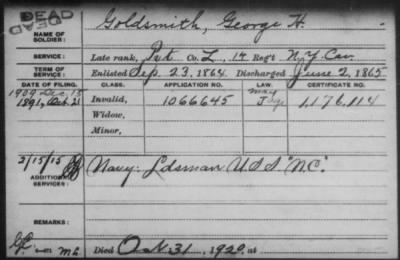 DEAD
DEAD
NAME OF SOLDIER: Goldsmith, George H.
SERVICE: Late rank, Pvt Co. L, 14 Reg't N.Y. Cav.
TERM OF SERVICE: Enlisted Sep. 23, 1864 Discharged June 2, 1865
DATE OF FILING. CLASS. APPLICATION NO. LAW. CERTIFICATE NO.
1909 Dec 18 May
1891, Oct 21 Invalid, 1066645 1,176,114
Widow,
Minor,
2/15/15
ADDITIONAL SERVICES: Navy: Ldsman U.S.S "N.C."
REMARKS:
Died Oct 31, 1920, at